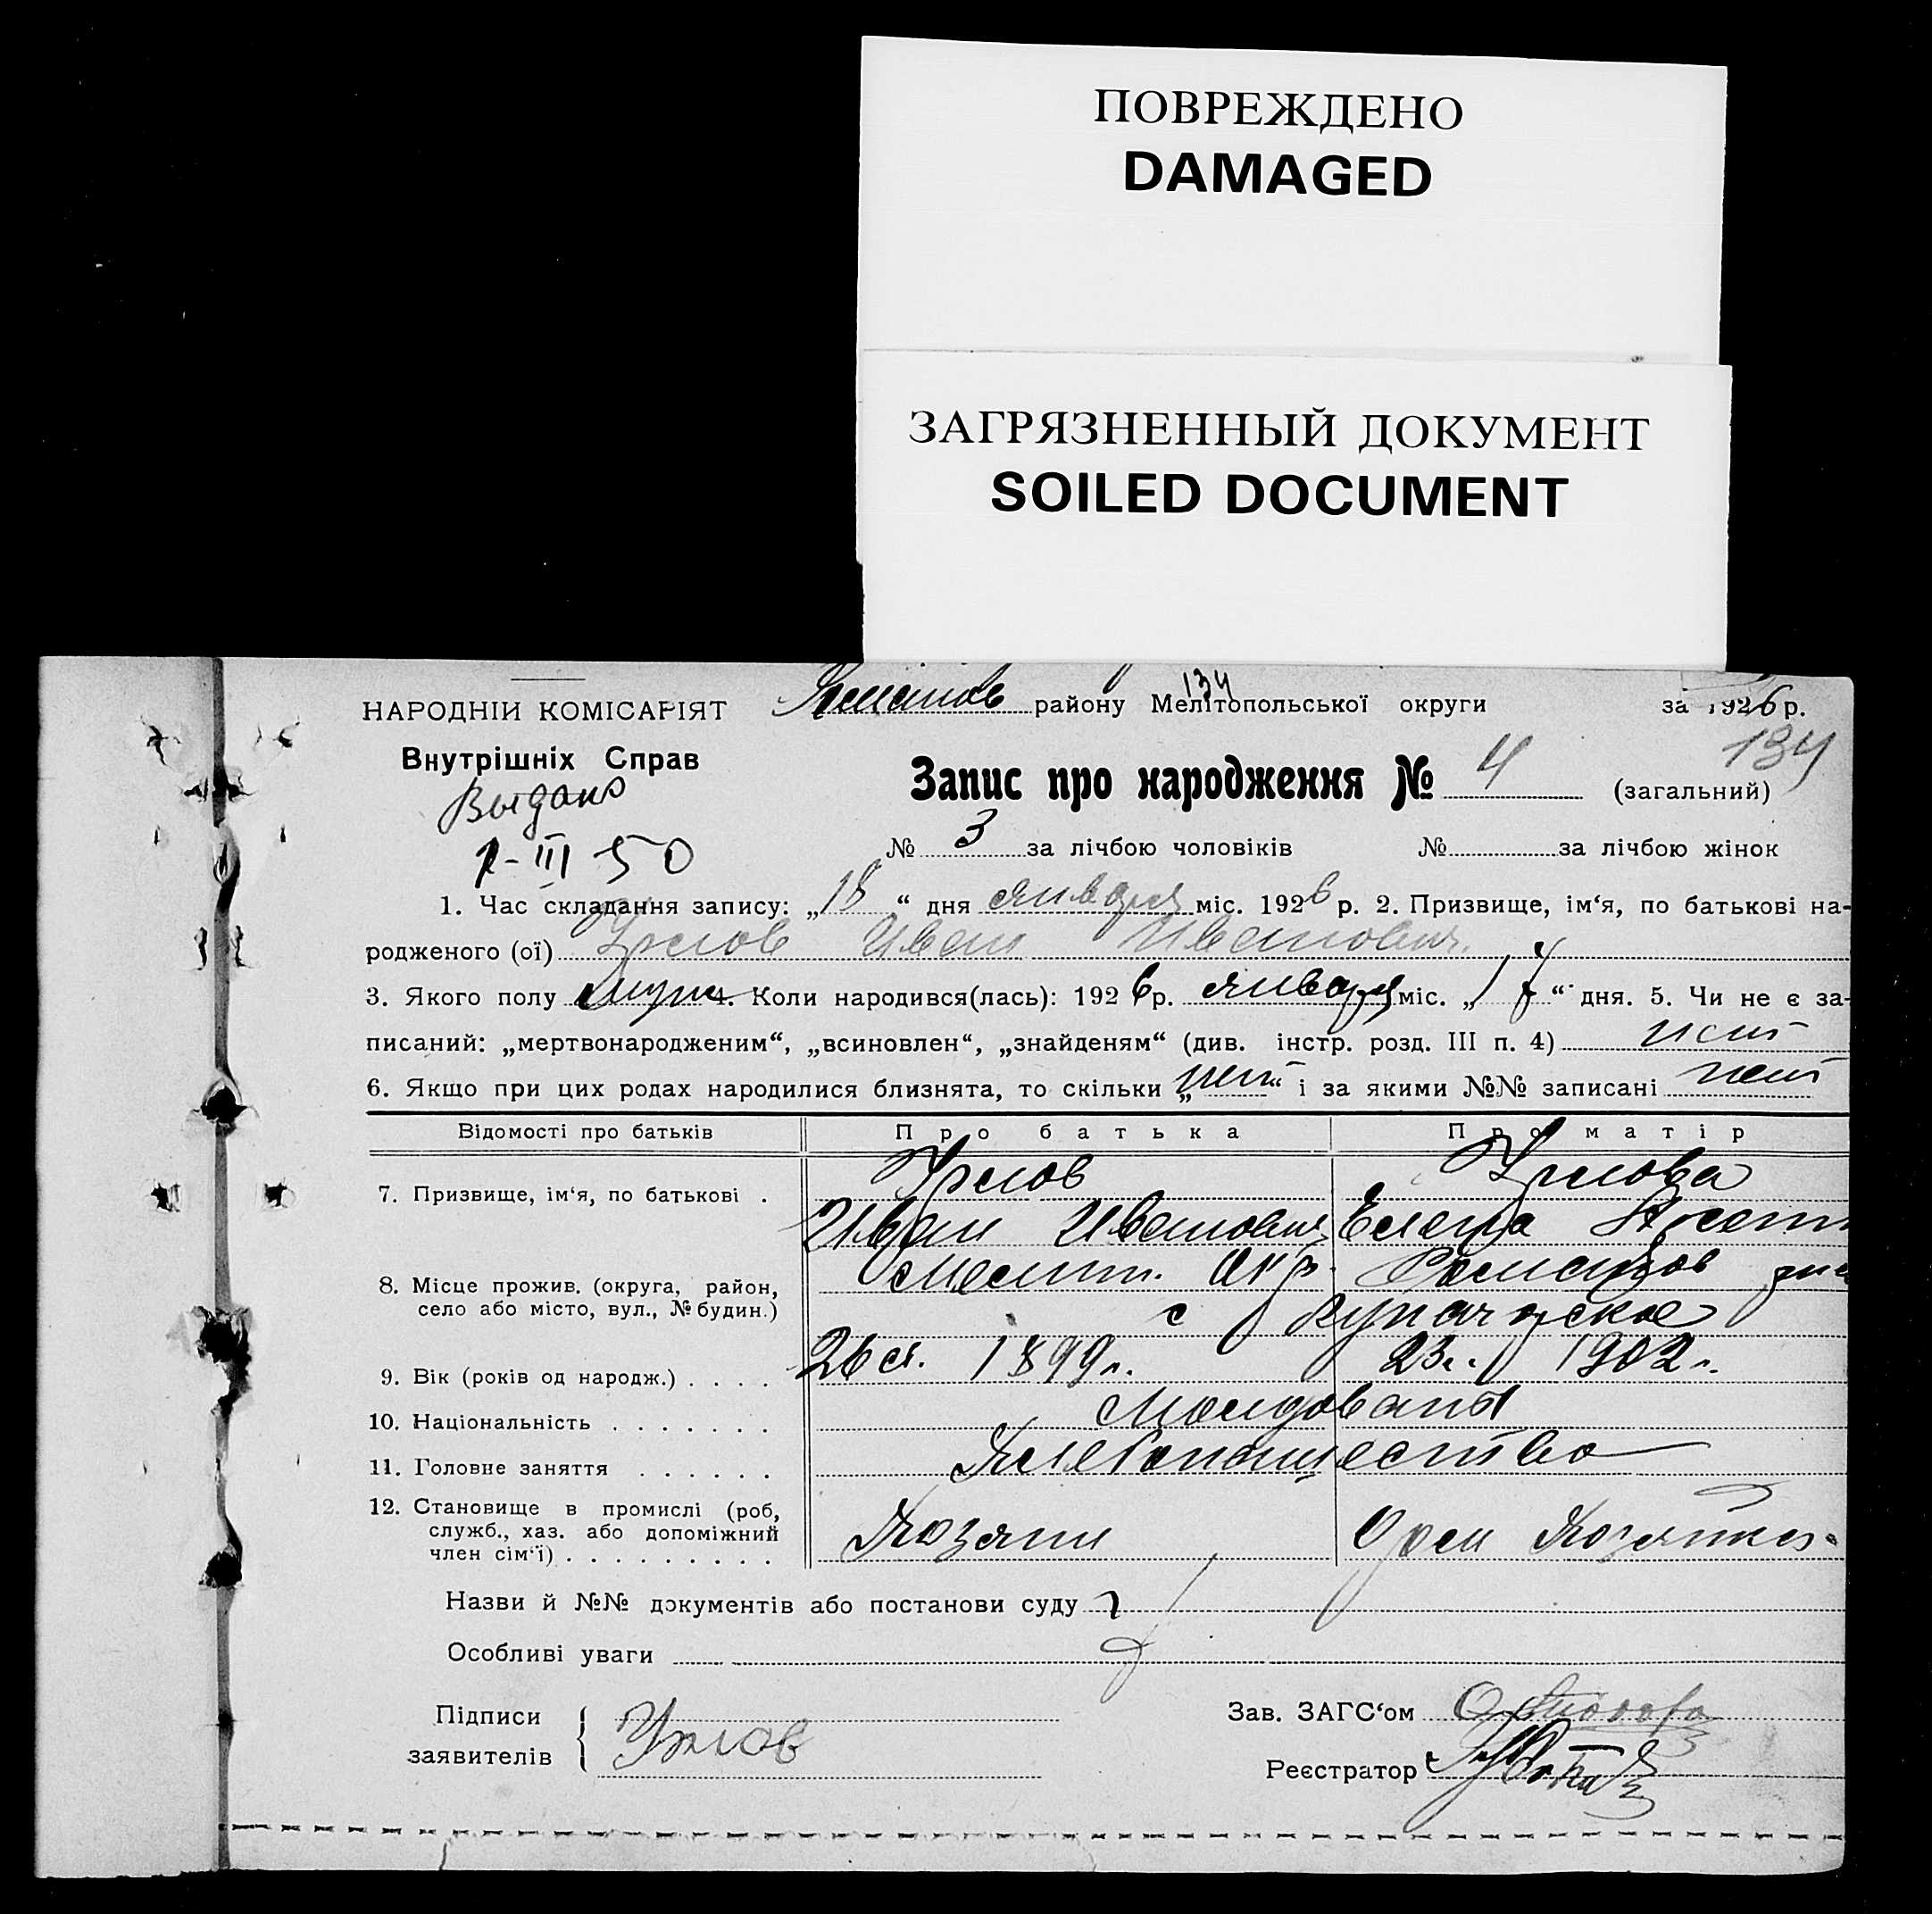 ПОВРЕЖДЕНО
DAMAGED
ЗАГРЯЗНЕННЫЙ ДОКУМЕНТ
SOILED DOCUMENT
134
НАРОДНІЙ КОМІСАРІЯТ
Внутрішніх Справ
Выдано
1-III 50
району Мелітопольської округи за 1926 р.
134
Запис про народження № 4 (загальний)
№ 3 за лічбою чоловіків № за лічбою жінок
1. Час складання запису: „18“ дня января міс. 1926 р. 2. Призвище, ім‘я, по батькові на-
родженого (ої) Иван Иванович
3. Якого полу муж 4. Коли народився(лась): 1926 р. января міс. „17“ дня. 5. Чи не є за-
писаний: „мертвонародженим“, „всиновлен“, „знайденям“ (див. інстр. розд. III п. 4) нет
6. Якщо при цих родах народилися близнята, то скільки „нет“ і за якими №№ записані нет
Відомості про батьків Про батька Про матір
7. Призвище, ім‘я, по батькові .
Иван Иванович Елена
8. Місце прожив. (округа, район,
село або місто, вул., № будин.)
Мелит. Окр.
с
9. Вік (років од народж.) . . . . 26 л. 1899 г. 23 г. 1902 г.
10. Національність . . . . . . . Молдоване
11. Головне заняття . . . . . . Хлебопашество
12. Становище в промислі (роб,
служб., хаз. або допоміжний
член сім‘ї) . . . . . . . . . Хозяин
Назви й №№ документів або постанови суду
Особливі уваги
Підписи
заявителів
Зав. ЗАГС‘ом
Реєстратор